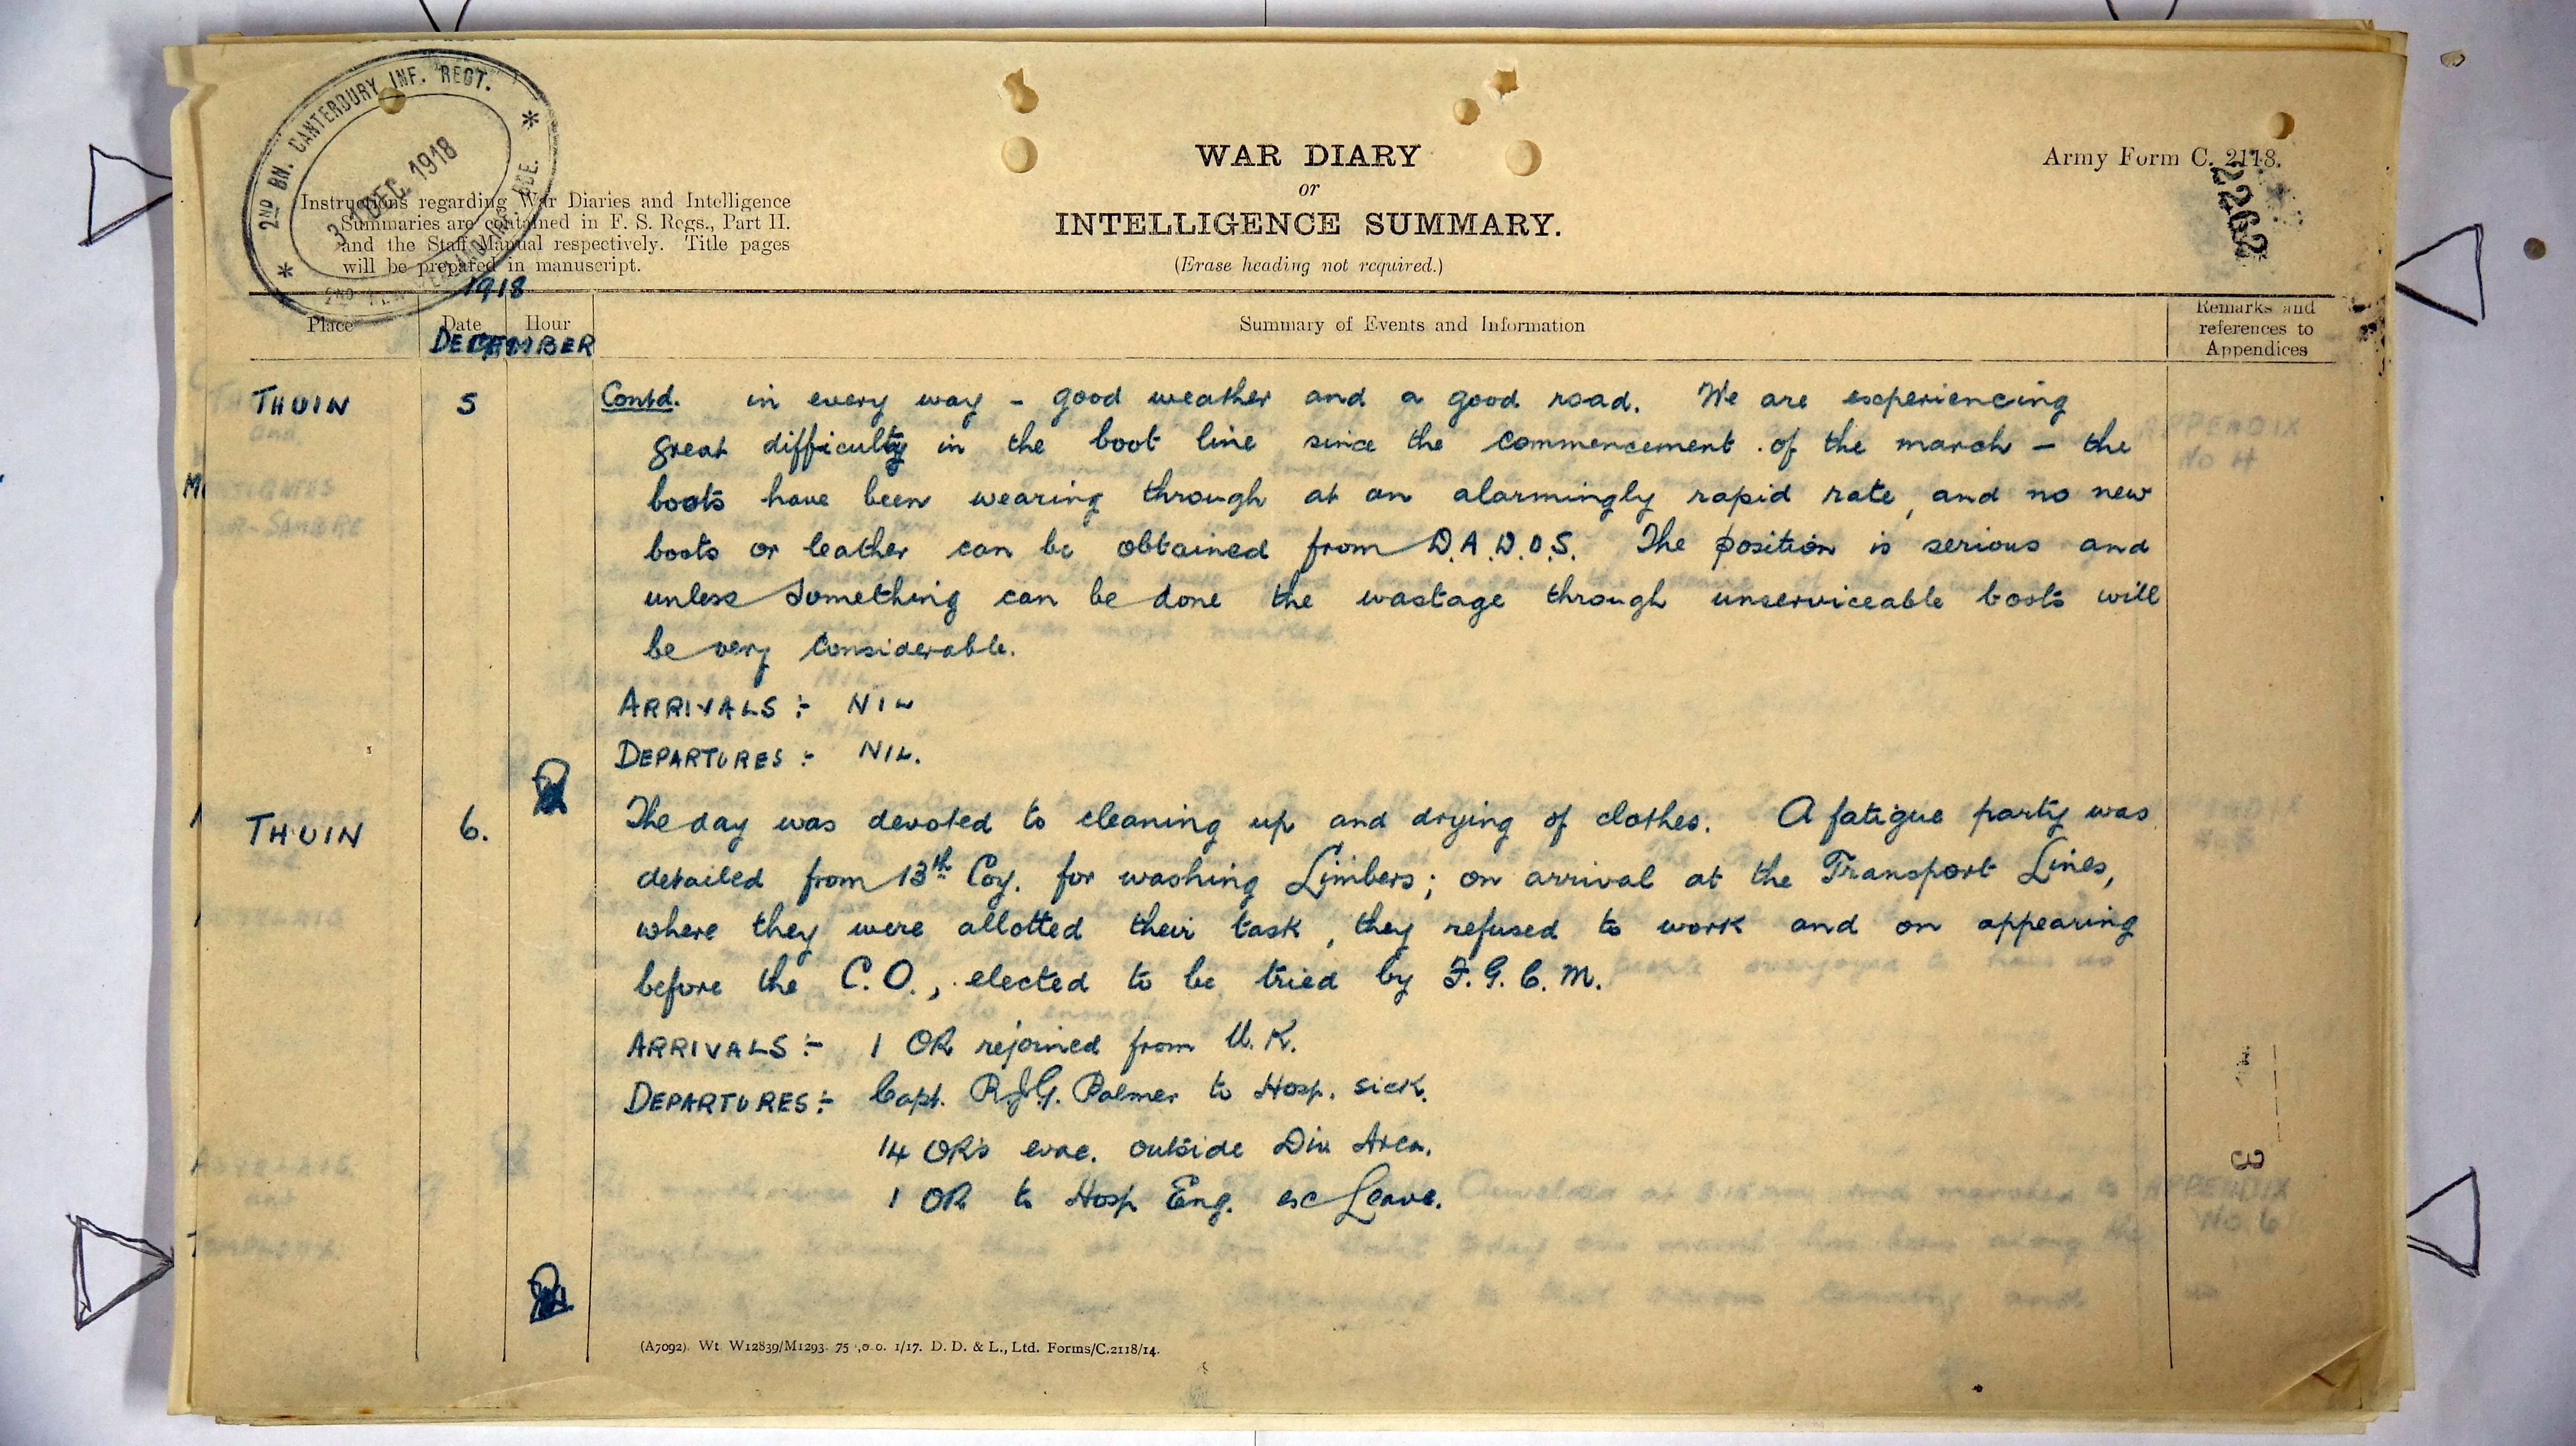 2ND BN. CANTERBURY INF. REGT.
31 DEC. 1918
WAR DIARY
or
INTELLIGENCE SUMMARY.
(Erase heading not required.)
Army Form C. 2118.
2262
Instructions regarding War Diaries and Intelligence
Summaries are contained in F. S. Regs., Part II.
and the Staff Manual respectively. Title pages
will be prepared in manuscript.
1918
Place Date Hour Summary of Events and Information Remarks and references to Appendices
DECEMBER
THUIN 5 Contd. in every way - good weather and a good road. We are experiencing
great difficulty in the boot line since the commencement of the march - the
boots have been wearing through at an alarmingly rapid rate, and no new
boots or leather can be obtained from D.A.D.O.S. The position is serious and
unless something can be done the wastage through unserviceable boots will
be very considerable.
ARRIVALS :- NIL
DEPARTURES :- NIL.
THUIN 6. The day was devoted to cleaning up and drying of clothes. A fatigue party was
detailed from 13th Coy. for washing Limbers; on arrival at the Transport Lines,
where they were allotted their task, they refused to work and on appearing
before the C.O., elected to be tried by F.G.C.M.
ARRIVALS :- 1 OR rejoined from U.K.
DEPARTURES :- Capt. R.J.G. Palmer to Hosp. sick.
14 ORs evac. outside Div Area.
1 OR to Hosp Eng. ex Leave.
3
(A7092). Wt. W12839/M1293. 75 ,0 0. 1/17. D. D. & L., Ltd. Forms/C.2118/14.